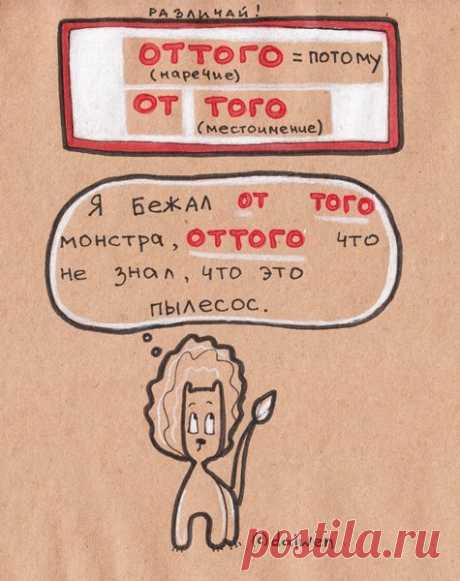 РАЗЛИЧАЙ!
ОТТОГО = ПОТОМУ
(наречие)
ОТ ТОГО
(местоимение)
Я БЕЖАЛ ОТ ТОГО
МОНСТРА, ОТТОГО ЧТО
НЕ ЗНАЛ, ЧТО ЭТО
ПЫЛЕСОС.
postila.ru